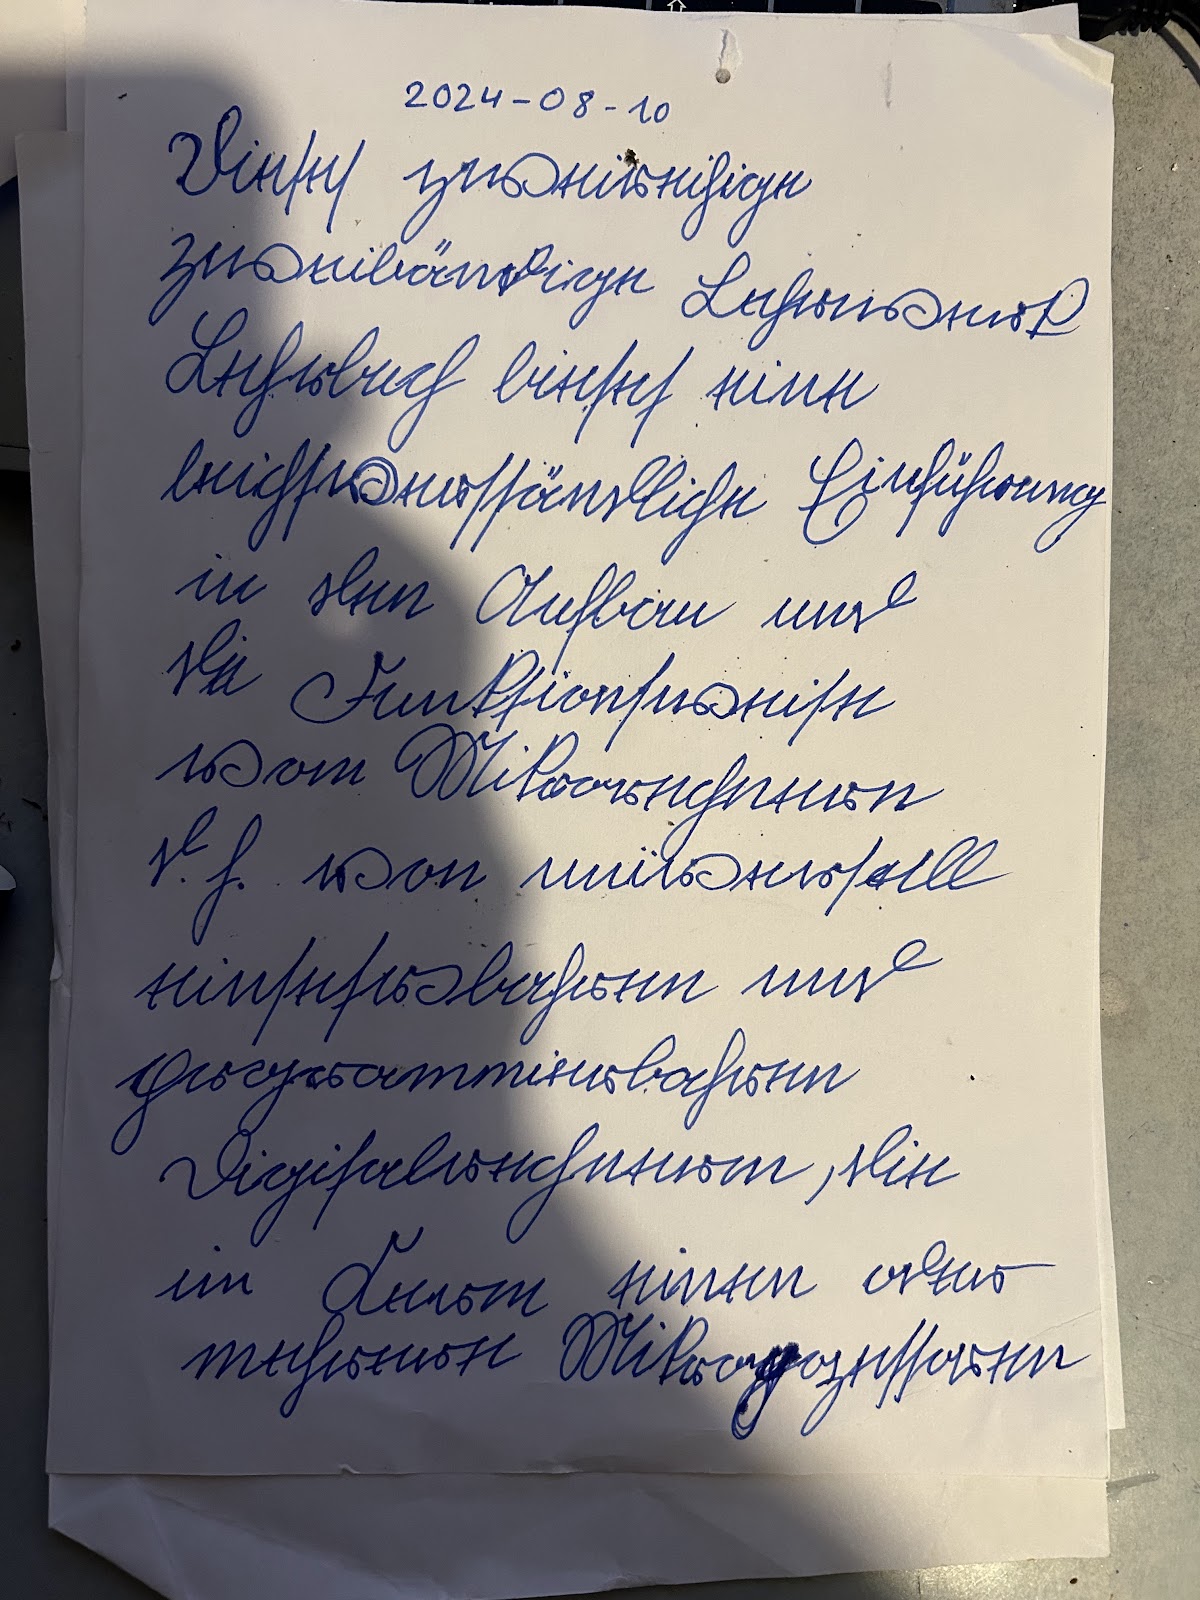 2024-08-10
Dieses zweiweihige
zweibändige Lehrwerk
Lehrbuch bietet eine
leichtverständliche Einführung
in den Aufbau und
die Funktionsweise
vom Mikrorechnern
d. h. von universell
einsetzbaren und
programmierbaren
Digitalrechnern, die
im Kern einen oder
mehrere Mikroprozessoren